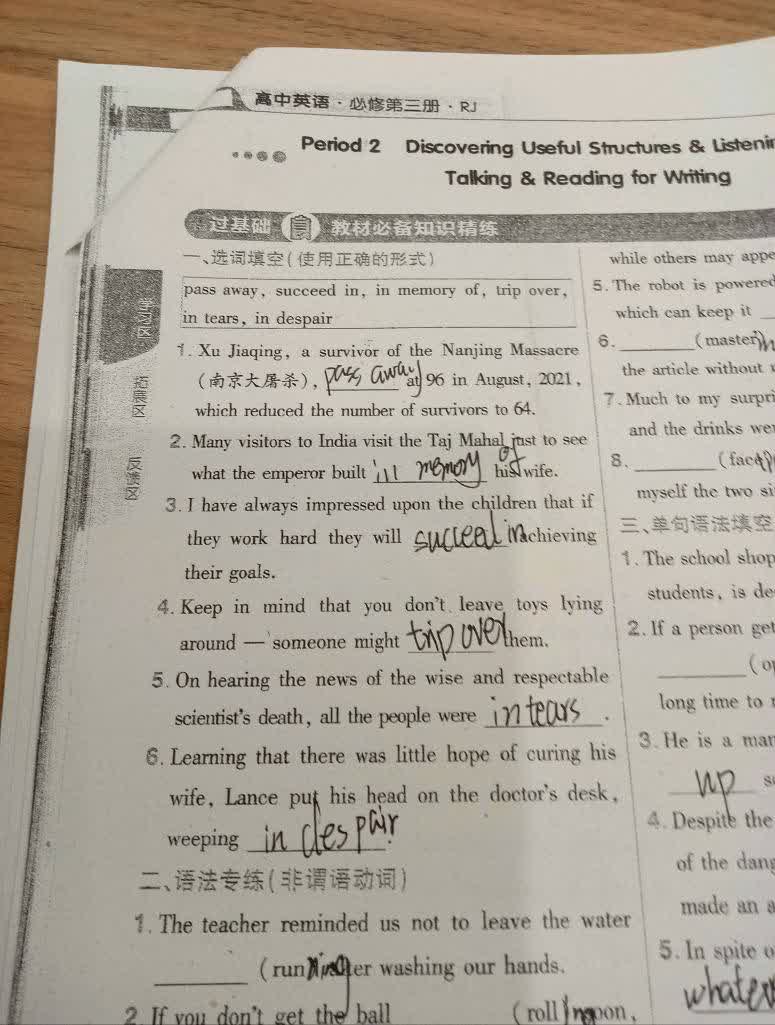 高中英语·必修第三册·RJ
Period 2 Discovering Useful Structures & Listenin
Talking & Reading for Writing
过基础 教材必备知识精练
一、选词填空(使用正确的形式)
pass away, succeed in, in memory of, trip over,
in tears, in despair
1. Xu Jiaqing, a survivor of the Nanjing Massacre
(南京大屠杀), pass away at 96 in August, 2021,
which reduced the number of survivors to 64.
2. Many visitors to India visit the Taj Mahal just to see
what the emperor built in memory of his wife.
3. I have always impressed upon the children that if
they work hard they will succeed in achieving
their goals.
4. Keep in mind that you don't leave toys lying
around — someone might trip over them.
5. On hearing the news of the wise and respectable
scientist's death, all the people were in tears.
6. Learning that there was little hope of curing his
wife, Lance put his head on the doctor's desk,
weeping in despair.
二、语法专练(非谓语动词)
1. The teacher reminded us not to leave the water
(run) after washing our hands.
2. If you don't get the ball (roll) soon,
while others may appe
5. The robot is powered
which can keep it
6. (master)
the article without
7. Much to my surpri
and the drinks wer
8. (face)
myself the two si
三、单句语法填空
1. The school shop
students, is de
2. If a person get
(o
long time to
3. He is a mar
up s
4. Despite the
of the dang
made an a
5. In spite o
whatever
学习区
拓展区
反馈区